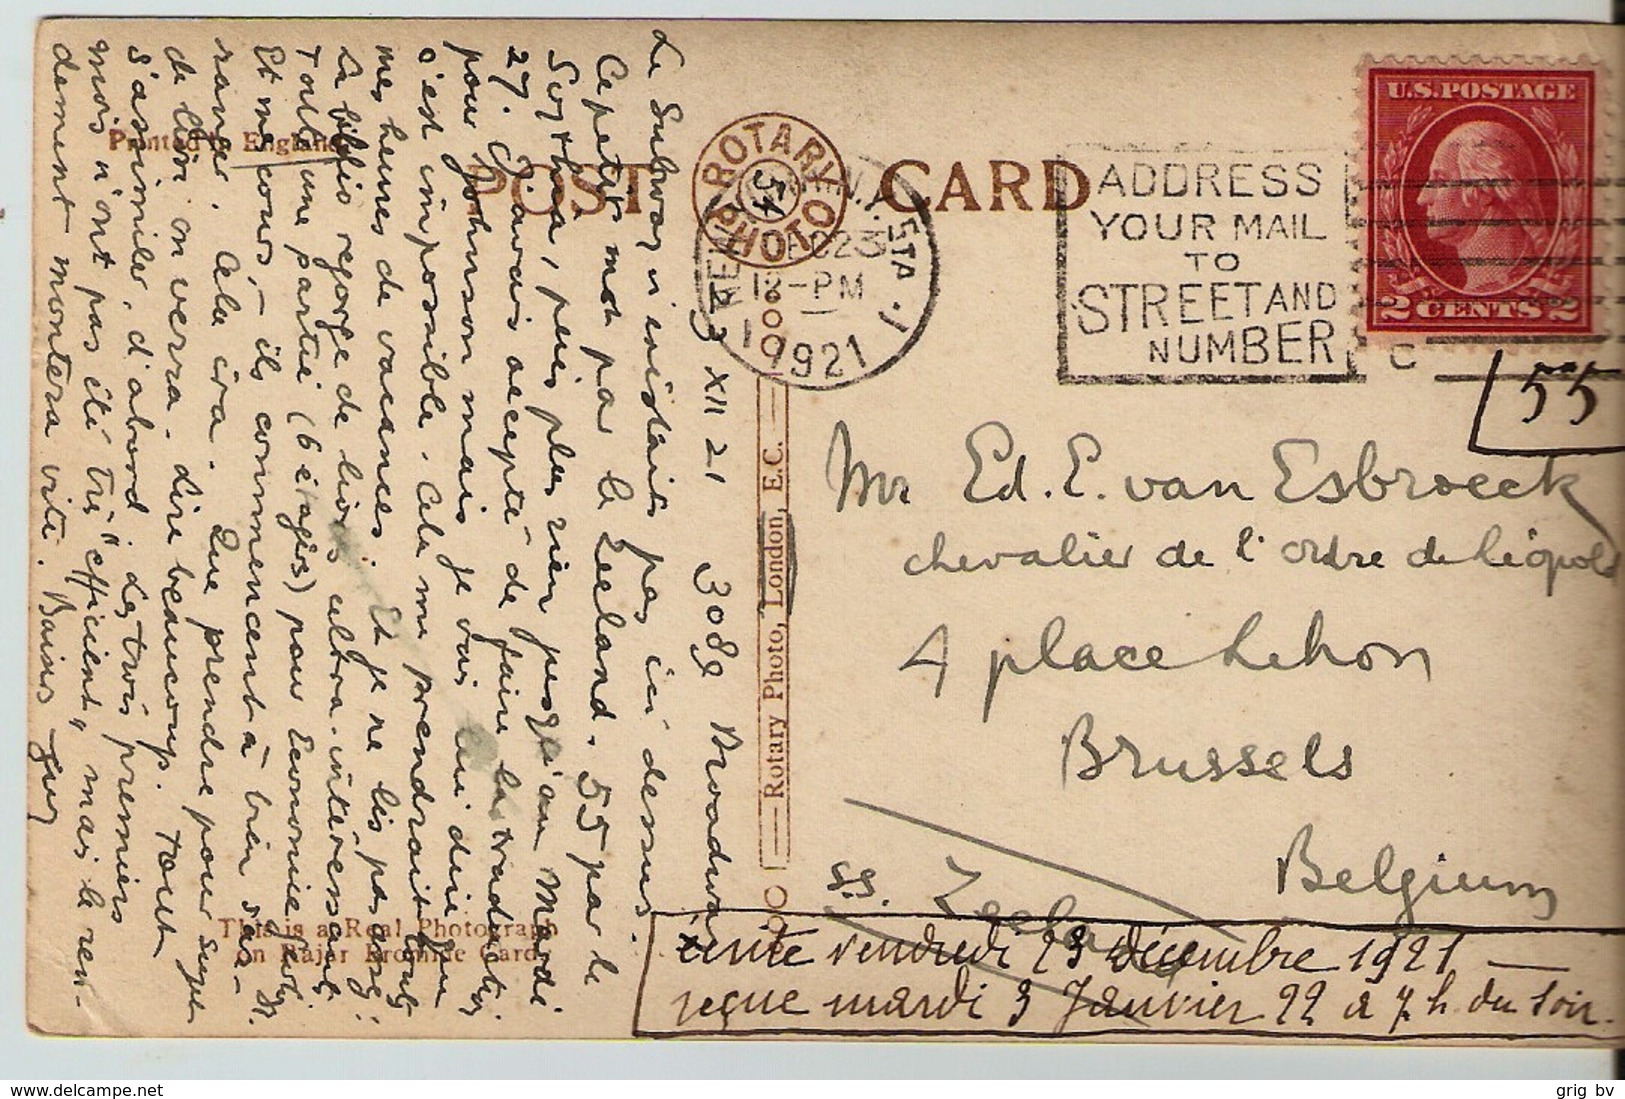 Printed in England
POST CARD
ROTARY PHOTO
NEW
N.Y.
STA
DEC 23
12-PM
1921
ADDRESS
YOUR MAIL
TO
STREET AND
NUMBER
U.S. POSTAGE
2 CENTS 2
C
55
23 XII 21 3089 Broadway
Le Subway n'existait pas ici dessus.
Ce petit mot par le Zeeland. 55 par le
Scythia, puis plus rien jusqu'au Mardi
27. J'avais accepté de faire la traduction
pour Johnson mais je vais lui dire que
c'est impossible. Cela me prendrait toutes
mes heures de vacances. Et je ne lis pas assez.
La biblio regorge de livres ultra-intéressants
Toute une partie (6 étages) pour Economie
Et mes cours, - ils commencent à bien
ranger. Cela ira. Que prendre pour sujet
de l'on verra. Lire beaucoup. Tout
s'assimiler, d'abord. Les trois premiers
mois n'ont pas été très "efficient", mais le ren-
dement montera vite. Baisers Guy
Mr Ed. E. van Esbroeck
chevalier de l'ordre de Léopold
4 place Lehon
Brussels
Belgium
Rotary Photo, London, E.C.
This is a Real Photograph
on Rajar Bromide Card
ss. Zeeland
écrite vendredi 23 décembre 1921
reçue mardi 3 Janvier 22 à 7 h. du soir.
www.delcampe.net
grig bv